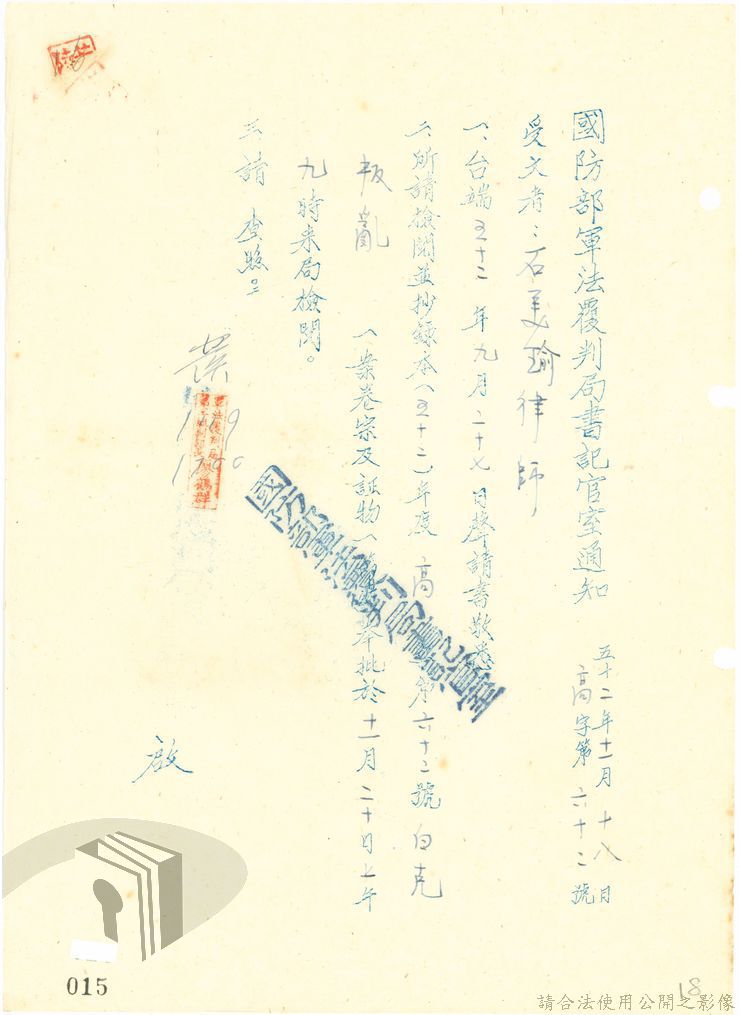 國防部軍法覆判局書記官室通知
五十二年十一月十八日
高字第六十二號
受文者：石美瑜律師
一、台端五十二年九月二十七日聲請書敬悉
二、所請檢閱並抄錄本（五十二）年度高 第六十二號白克
叛亂 一案卷宗及証物 奉批於十一月二十日上午
九時來局檢閱。
三、請查照。
啟
國防部軍法覆判局書記官室
015
18
請合法使用公開之影像